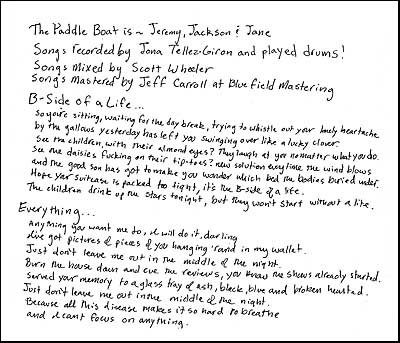 The Paddle Boat is ~ Jeremy, Jackson & Jane
Songs recorded by Jona Tellez-Giron and played drums!
Songs Mixed by Scott Wheeler
Songs Mastered by Jeff Carroll at Bluefield Mastering
B-Side of a Life...
So you're sitting, waiting for the day break, trying to whistle out your lovely heartache
by the gallows yesterday has left you swinging over like a lucky clover.
See the children with their almond eyes? They laugh at you no matter what you do.
See the daisies fucking on their tip-toes? new solution everytime the wind blows
and the good son has got to make you wonder which bed the bodies buried under.
Hope your suitcase is packed too tight, it's the B-side of a life.
The children drink up the stars tonight, but they won't start without a lite.
Everything...
Anything you want me to, I will do it, darling
I've got pictures & pieces of you hanging 'rand in my wallet.
Just don't leave me out in the middle of the night.
Burn the house down and cue the reviews, you know the shows already started.
Served your memory to a glass tray of ash, black, blue and broken hearted.
Just don't leave me out in the middle of the night.
Because all this disease makes it so hard to breathe
and I cant focus on anything.